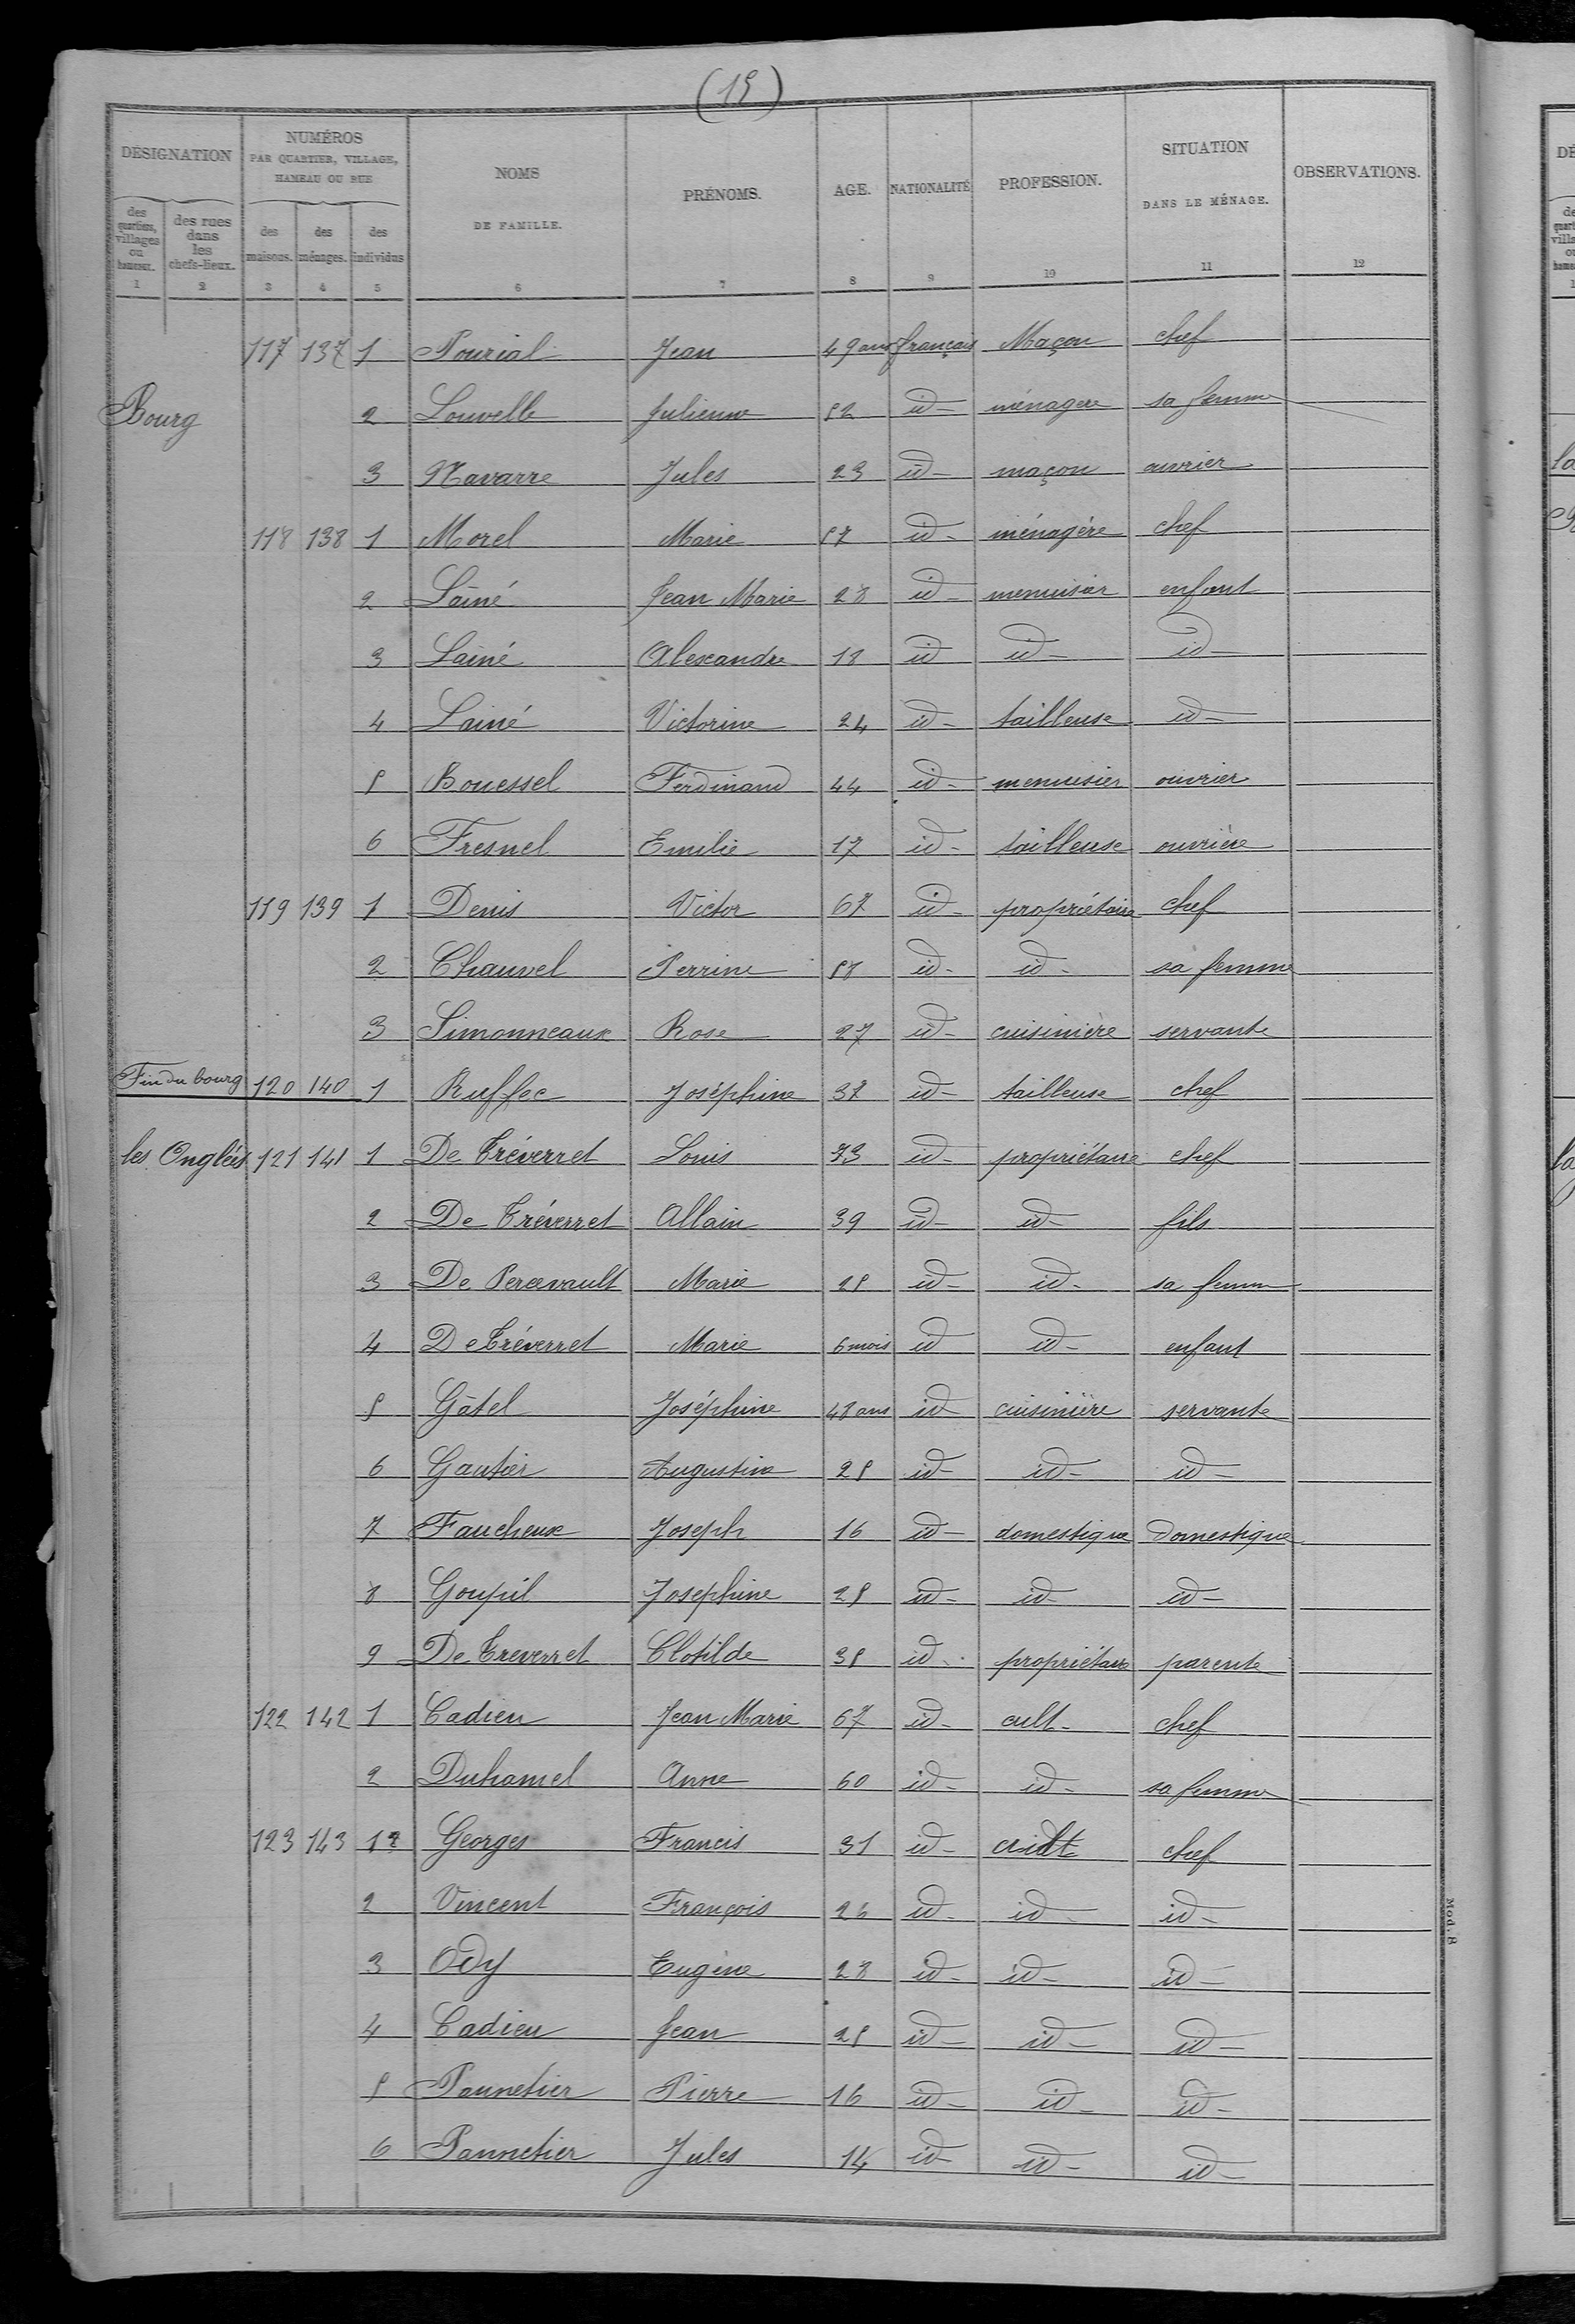 (15)
DÉSIGNATION NUMÉROS PAR QUARTIER, VILLAGE, HAMEAU OU RUE NOMS DE FAMILLE. PRÉNOMS. AGE. NATIONALITÉ PROFESSION. SITUATION DANS LE MÉNAGE. OBSERVATIONS.
des quartiers, villages ou hameaux. des rues dans les chefs-lieux. des maisons. des ménages. des individus
1 2 3 4 5 6 7 8 9 10 11 12
117 137 1 Pourial Jean 49 ans français Maçon chef
Bourg 2 Louvelle Julienne 52 id- ménagere sa femme
3 Navarre Jules 23 id- maçon ouvrier
118 138 1 Morel Marie 57 id- ménagère chef
2 Lainé Jean Marie 28 id- menuisier enfant
3 Lainé Alexandre 18 id id- id-
4 Lainé Victorine 24 id- tailleuse id-
5 Bouessel Ferdinand 44 id- menuisier ouvrier
6 Fresnel Emilie 17 id- tailleuse ouvrière
119 139 1 Denis Victor 67 id- propriétaire chef
2 Chauvel Perrine 58 id- id- sa femme
3 Simonneaux Rose 27 id- cuisinière servante
Fin du bourg 120 140 1 Ruffec Joséphine 37 id- tailleuse chef
les Ongléés 121 141 1 De Tréverret Louis 73 id- propriétaire chef
2 De Tréverret Allain 39 id- id- fils
3 De Percevault Marie 25 id- id- sa femme
4 De Tréverret Marie 6 mois id id- enfant
5 Gâtel Joséphine 48 ans id cuisinière servante
6 Gautier Augustine 25 id- id- id-
7 Faucheux Joseph 16 id- domestique domestique
8 Goupil Josephine 25 id- id- id-
9 De Treverret Clotilde 35 id- propriétaire parente
122 142 1 Cadieu Jean Marie 67 id- cult- chef
2 Duhamel Anne 60 id- id- sa femme
123 143 1 Georges Francis 31 id- chef
2 Vincent François 26 id- id- id-
3 Ody Eugène 28 id- id- id-
4 Cadieu Jean 25 id- id- id-
5 Pannetier Pierre 16 id- id- id-
6 Pannetier Jules 14 id- id- id-
Mod. B